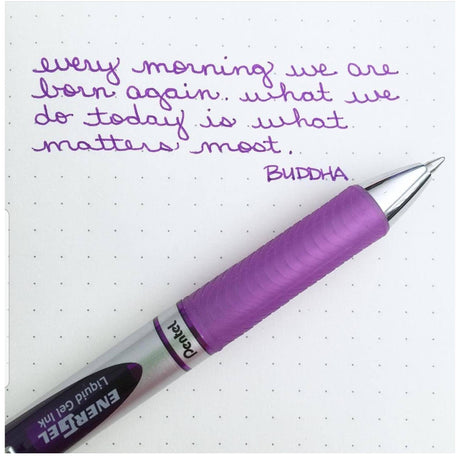 every morning we are
born again. what we
do today is what
matters most.
BUDDHA
Pentel
ENERGEL
Liquid Gel Ink